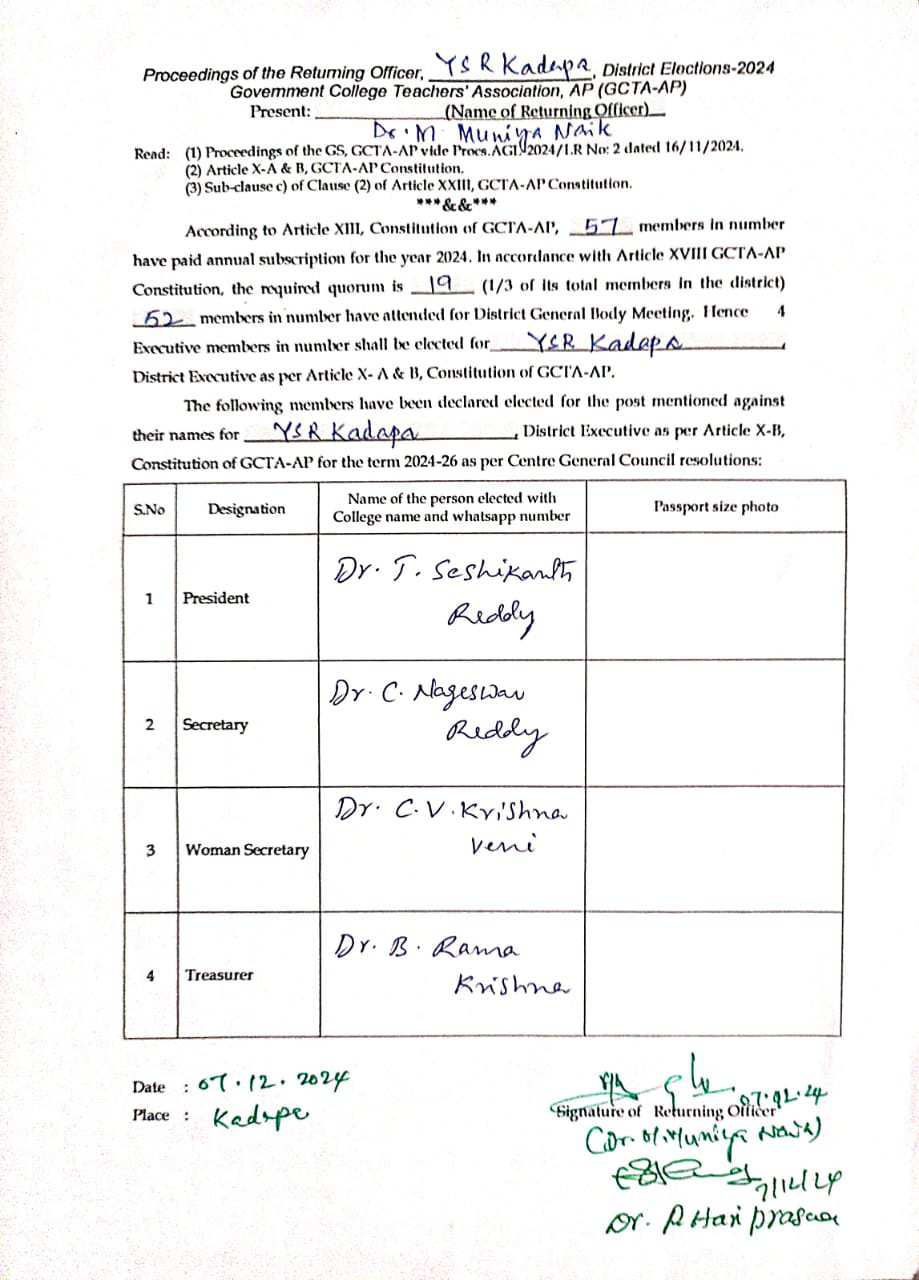 Proceedings of the Returning Officer, YSR Kadapa, District Elections-2024
Government College Teachers' Association, AP (GCTA-AP)
Present: (Name of Returning Officer)
Dr. M. Muniya Naik
Read: (1) Proceedings of the GS, GCTA-AP vide Procs.AGI 2024/I.R No: 2 dated 16/11/2024.
(2) Article X-A & B, GCTA-AP Constitution.
(3) Sub-clause c) of Clause (2) of Article XXIII, GCTA-AP Constitution.
***&&***
According to Article XIII, Constitution of GCTA-AP, 57 members in number
have paid annual subscription for the year 2024. In accordance with Article XVIII GCTA-AP
Constitution, the required quorum is 19 (1/3 of its total members in the district)
52 members in number have attended for District General Body Meeting. Hence 4
Executive members in number shall be elected for YSR Kadapa,
District Executive as per Article X- A & B, Constitution of GCTA-AP.
The following members have been declared elected for the post mentioned against
their names for YSR Kadapa, District Executive as per Article X-B,
Constitution of GCTA-AP for the term 2024-26 as per Centre General Council resolutions:
S.No Designation Name of the person elected with College name and whatsapp number Passport size photo
1 President Dr. T. Seshikanth Reddy
2 Secretary Dr. C. Nageswar Reddy
3 Woman Secretary Dr. C.V. Krishna Veni
4 Treasurer Dr. B. Rama Krishna
Date : 07.12.2024
Place : Kadapa
07.12.24
Signature of Returning Officer
(Dr. M. Muniya Naik)
7/12/24
Dr. R Hari prasad